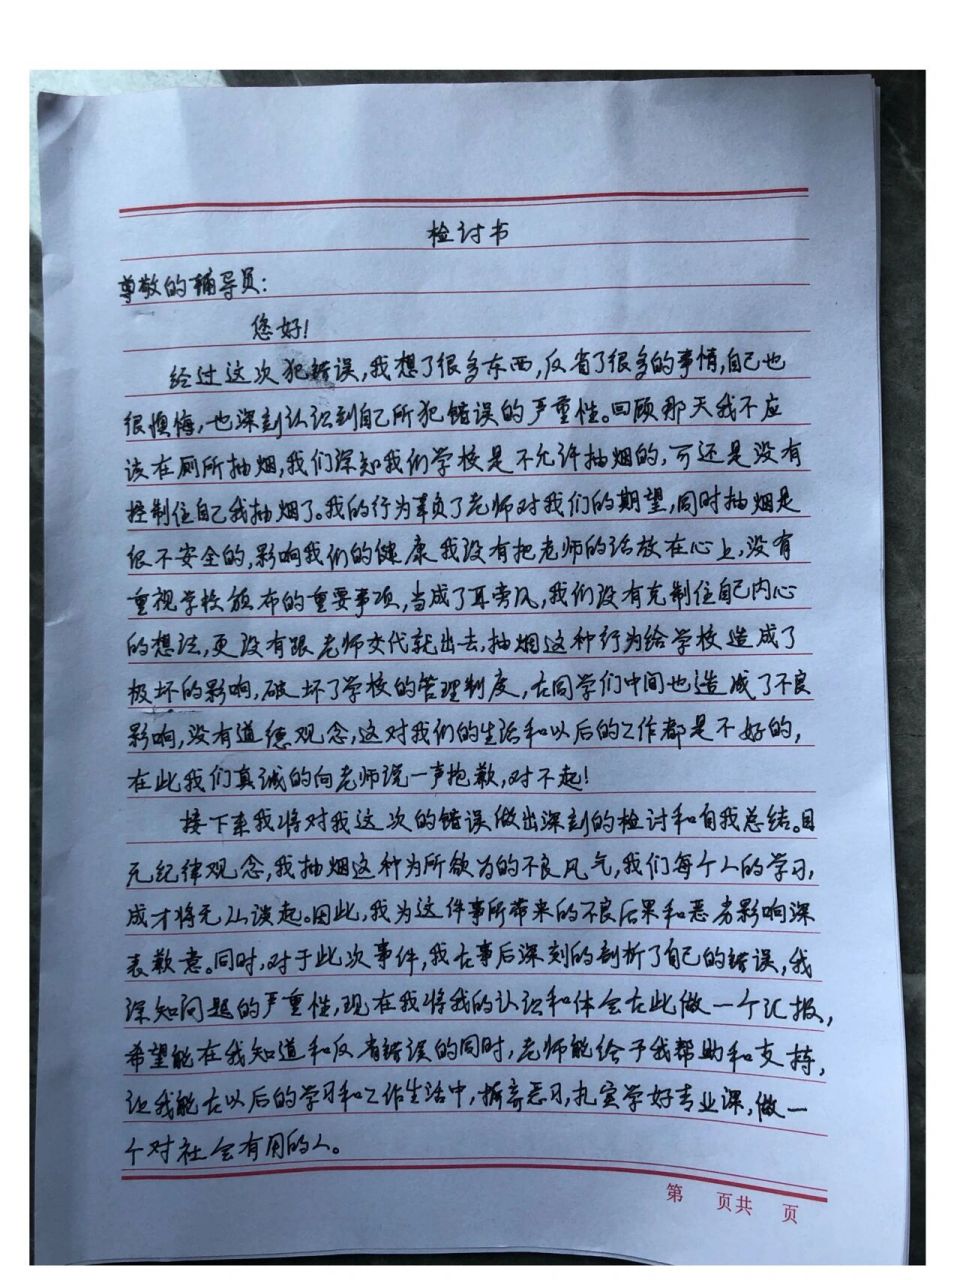 检讨书
尊敬的辅导员:
您好!
经过这次犯错误,我想了很多东西,反省了很多的事情,自己也
很懊悔,也深刻认识到自己所犯错误的严重性。回顾那天我不应
该在厕所抽烟,我们深知我们学校是不允许抽烟的,可还是没有
控制住自己我抽烟了。我的行为辜负了老师对我们的期望,同时抽烟是
很不安全的,影响我们的健康我没有把老师的话放在心上,没有
重视学校颁布的重要事项,当成了耳旁风,我们没有克制住自己内心
的想法,更没有跟老师交代就出去,抽烟这种行为给学校造成了
极坏的影响,破坏了学校的管理制度,在同学们中间也造成了不良
影响,没有道德观念,这对我们的生活和以后的工作都是不好的,
在此我们真诚的向老师说一声抱歉,对不起!
接下来我将对我这次的错误做出深刻的检讨和自我总结。目
无纪律观念,我抽烟这种为所欲为的不良风气,我们每个人的学习,
成才将无从谈起。因此,我为这件事所带来的不良后果和恶劣影响深
表歉意。同时,对于此次事件,我在事后深刻的剖析了自己的错误,我
深知问题的严重性,现在我将我的认识和体会在此做一个汇报,
希望能在我知道和反省错误的同时,老师能给予我帮助和支持,
让我能在以后的学习和工作生活中,摒弃恶习,扎实学好专业课,做一
个对社会有用的人。
第 页共 页